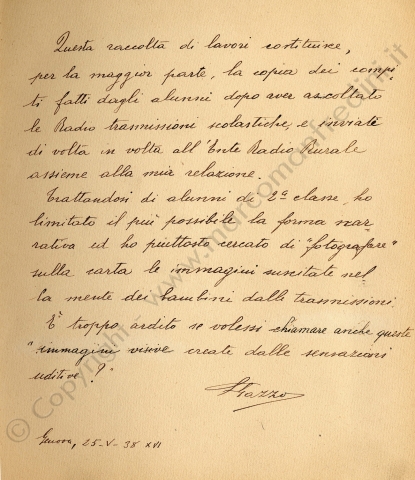 Questa raccolta di lavori costituisce,
per la maggior parte, la copia dei compi
ti fatti dagli alunni dopo aver ascoltato
le Radio trasmissioni scolastiche, e inviate
di volta in volta all'Ente Radio Rurale
assieme alla mia relazione.
Trattandosi di alunni di 2ª classe, ho
limitato il più possibile la forma nar-
rativa ed ho piuttosto cercato di "fotografare"
sulla carta le immagini suscitate nel
la mente dei bambini dalle trasmissioni.
È troppo ardito se volessi chiamare anche queste
"immagini visive create dalle sensazioni
uditive"?
Genova, 25-V-38 XVI
© Copyright - www.marcomanfredini.it